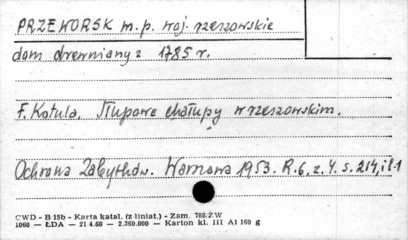 PRZEWORSK m.p. woj. rzeszowskie
dom drewniany z 1785 r.
F. Kotula. Słupowe chałupy w rzeszowskim.
Ochrona Zabytków. Warszawa 1953. R.6, z. 4. s. 214, il.1
CWD - B 15b - Karta katal. (z liniat.) - Zam. 788/ZW
1060 — ŁDA — 21 4.60 — 2.360.000 — Karton kl. III A1 160 g